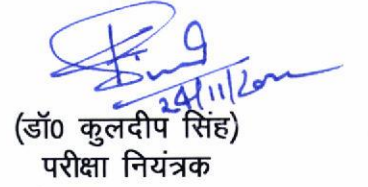 24/11/20
(डॉ0 कुलदीप सिंह)
परीक्षा नियंत्रक